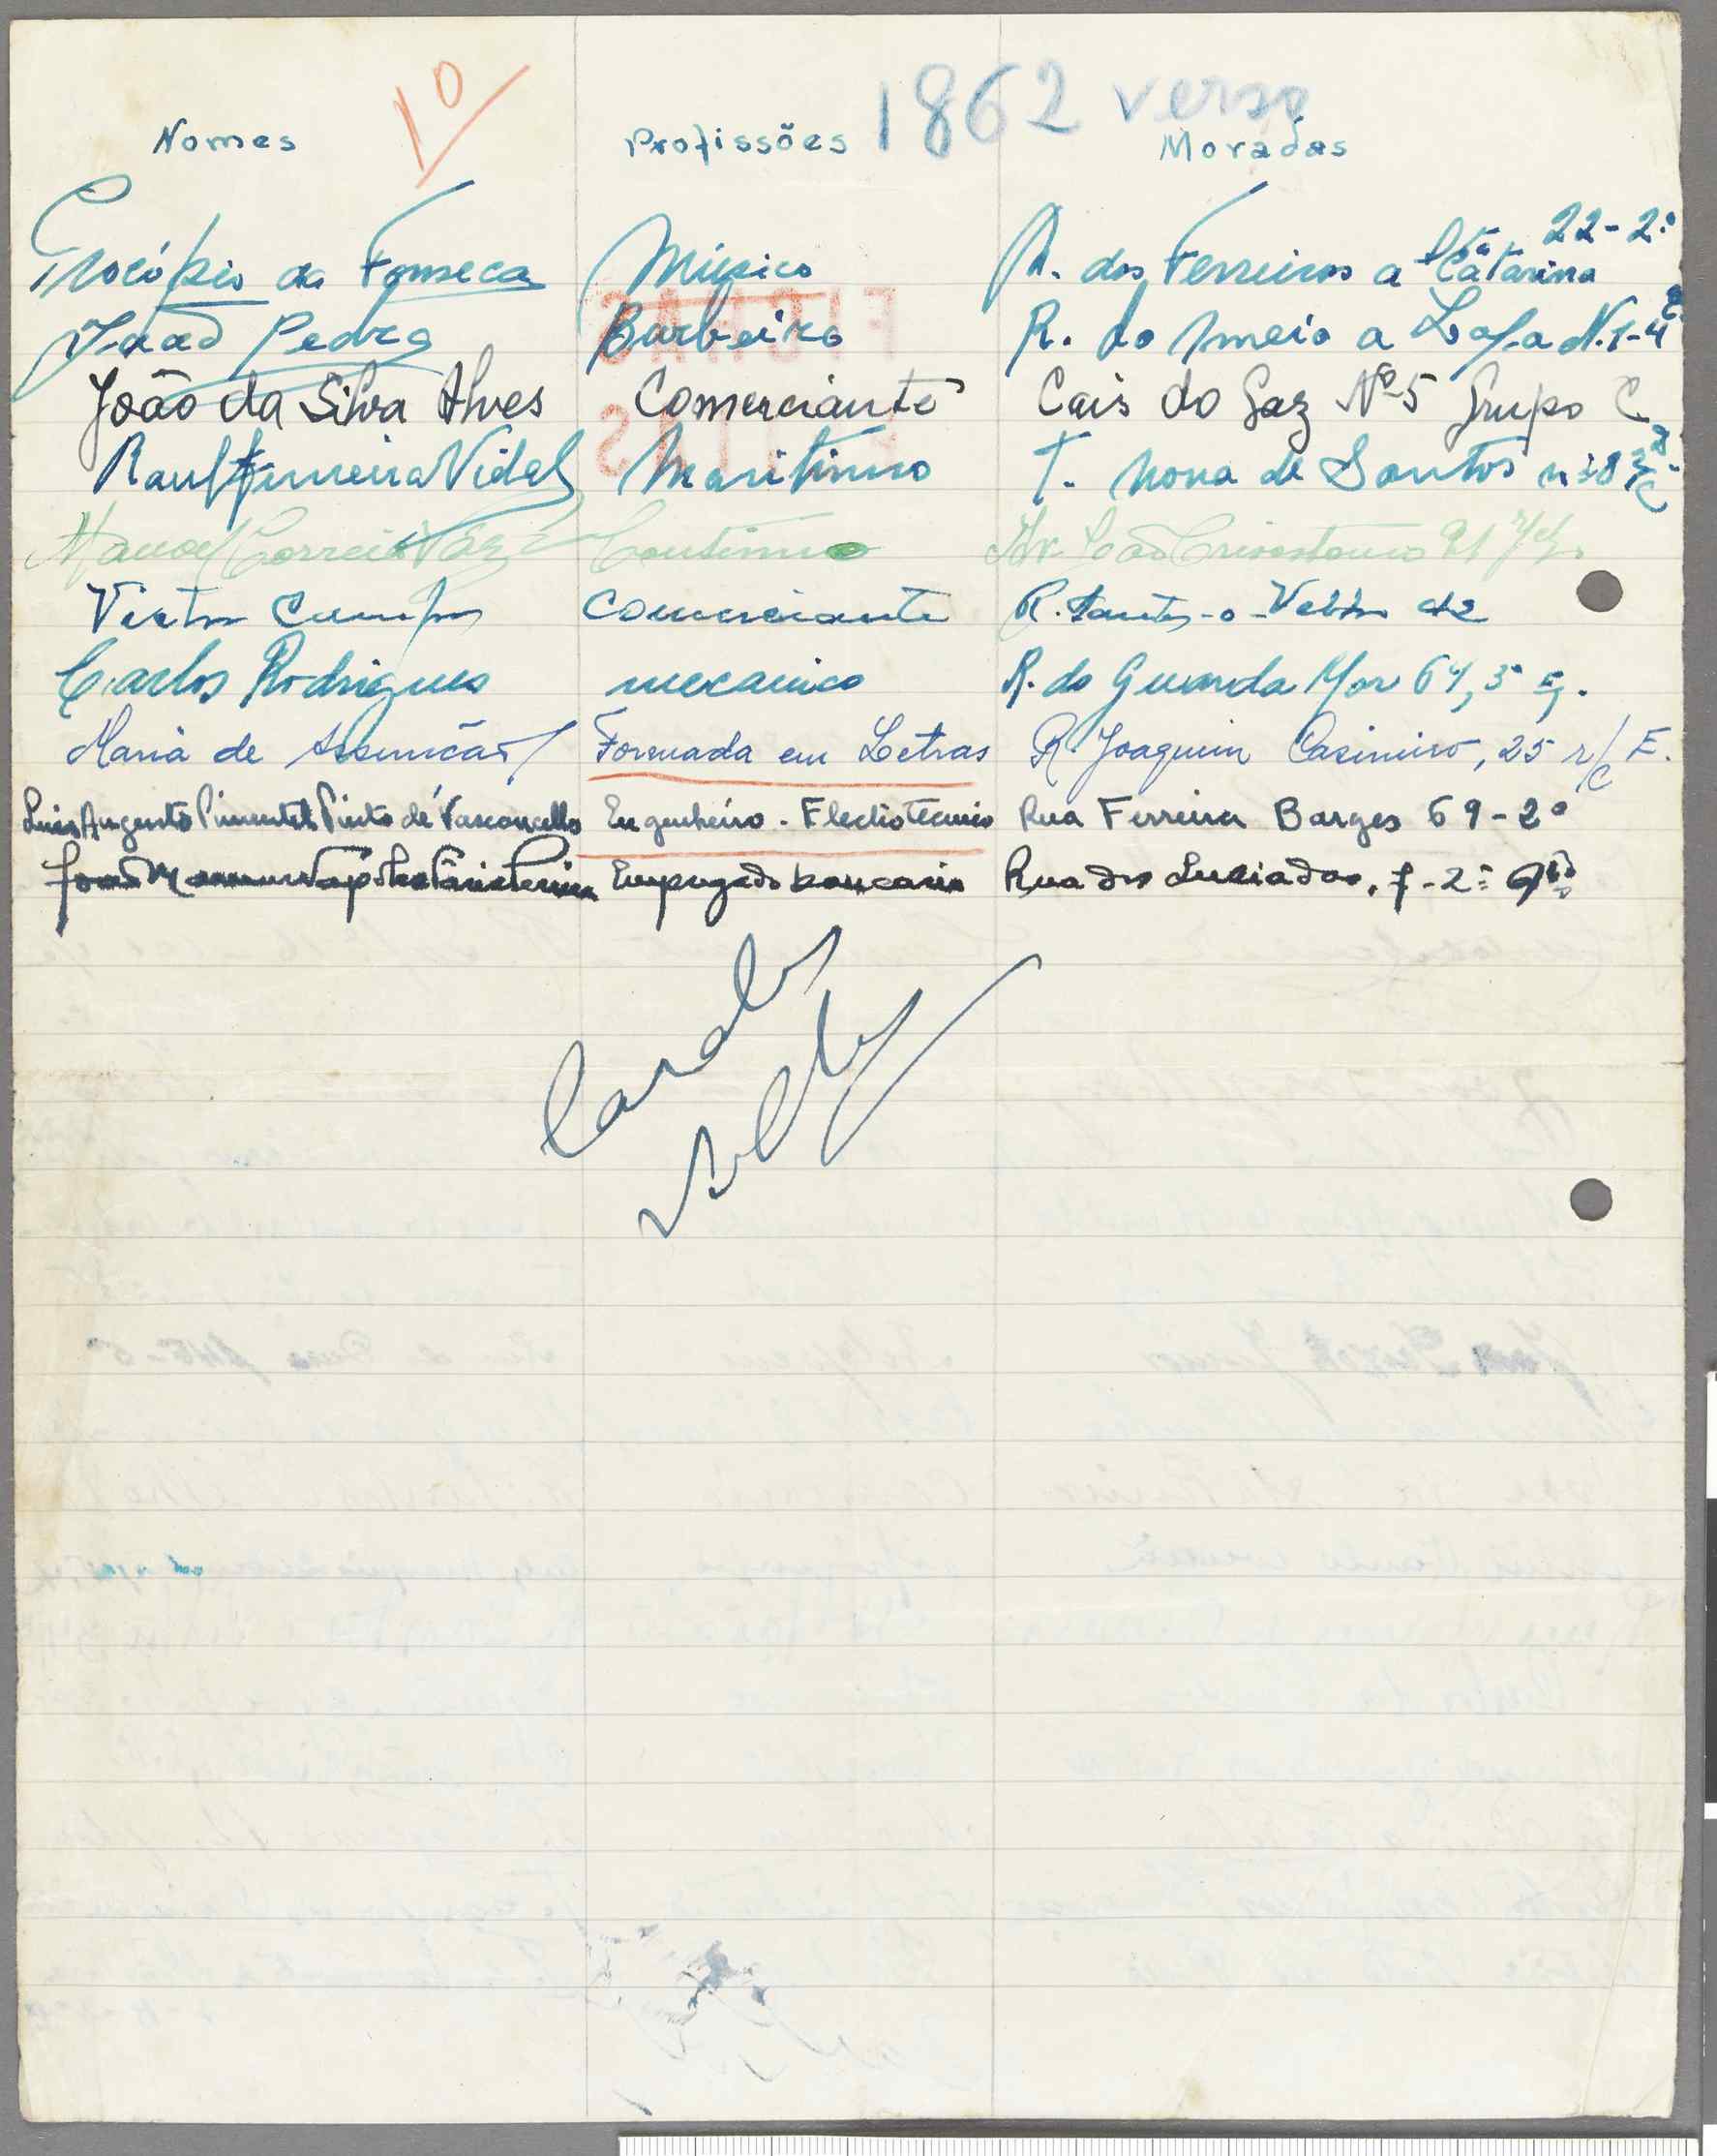 1º
1862 verso
Nomes Profissões Moradas
Procópio da Fonseca Músico R. dos Ferreiros a Stª Catarina 22-2º
João Pedro Barbeiro R. do Meio a Lapa N.1-4
João da Silva Alves Comerciante Cais do Gaz Nº5 Grupo C
Raul Ferreira Vidal Maritimo T. Nova de Santos
Manoel Correia Vaz Contino Av. João Crisostomo 91
Victor Comerciante R. Santos-o-Velho
Carlos Rodrigues mecanico R. do Guarda Mor 64, 3º E.
Maria de Assunção Formada em Letras R. Joaquim Casimiro, 25 r/c E.
Luis Augusto Pimentel Pinto de Vasconcellos Engenheiro-Electrotecnico Rua Ferreira Borges 69-2º
João Empregado bancario Rua dos Lusiadas, 7-2º